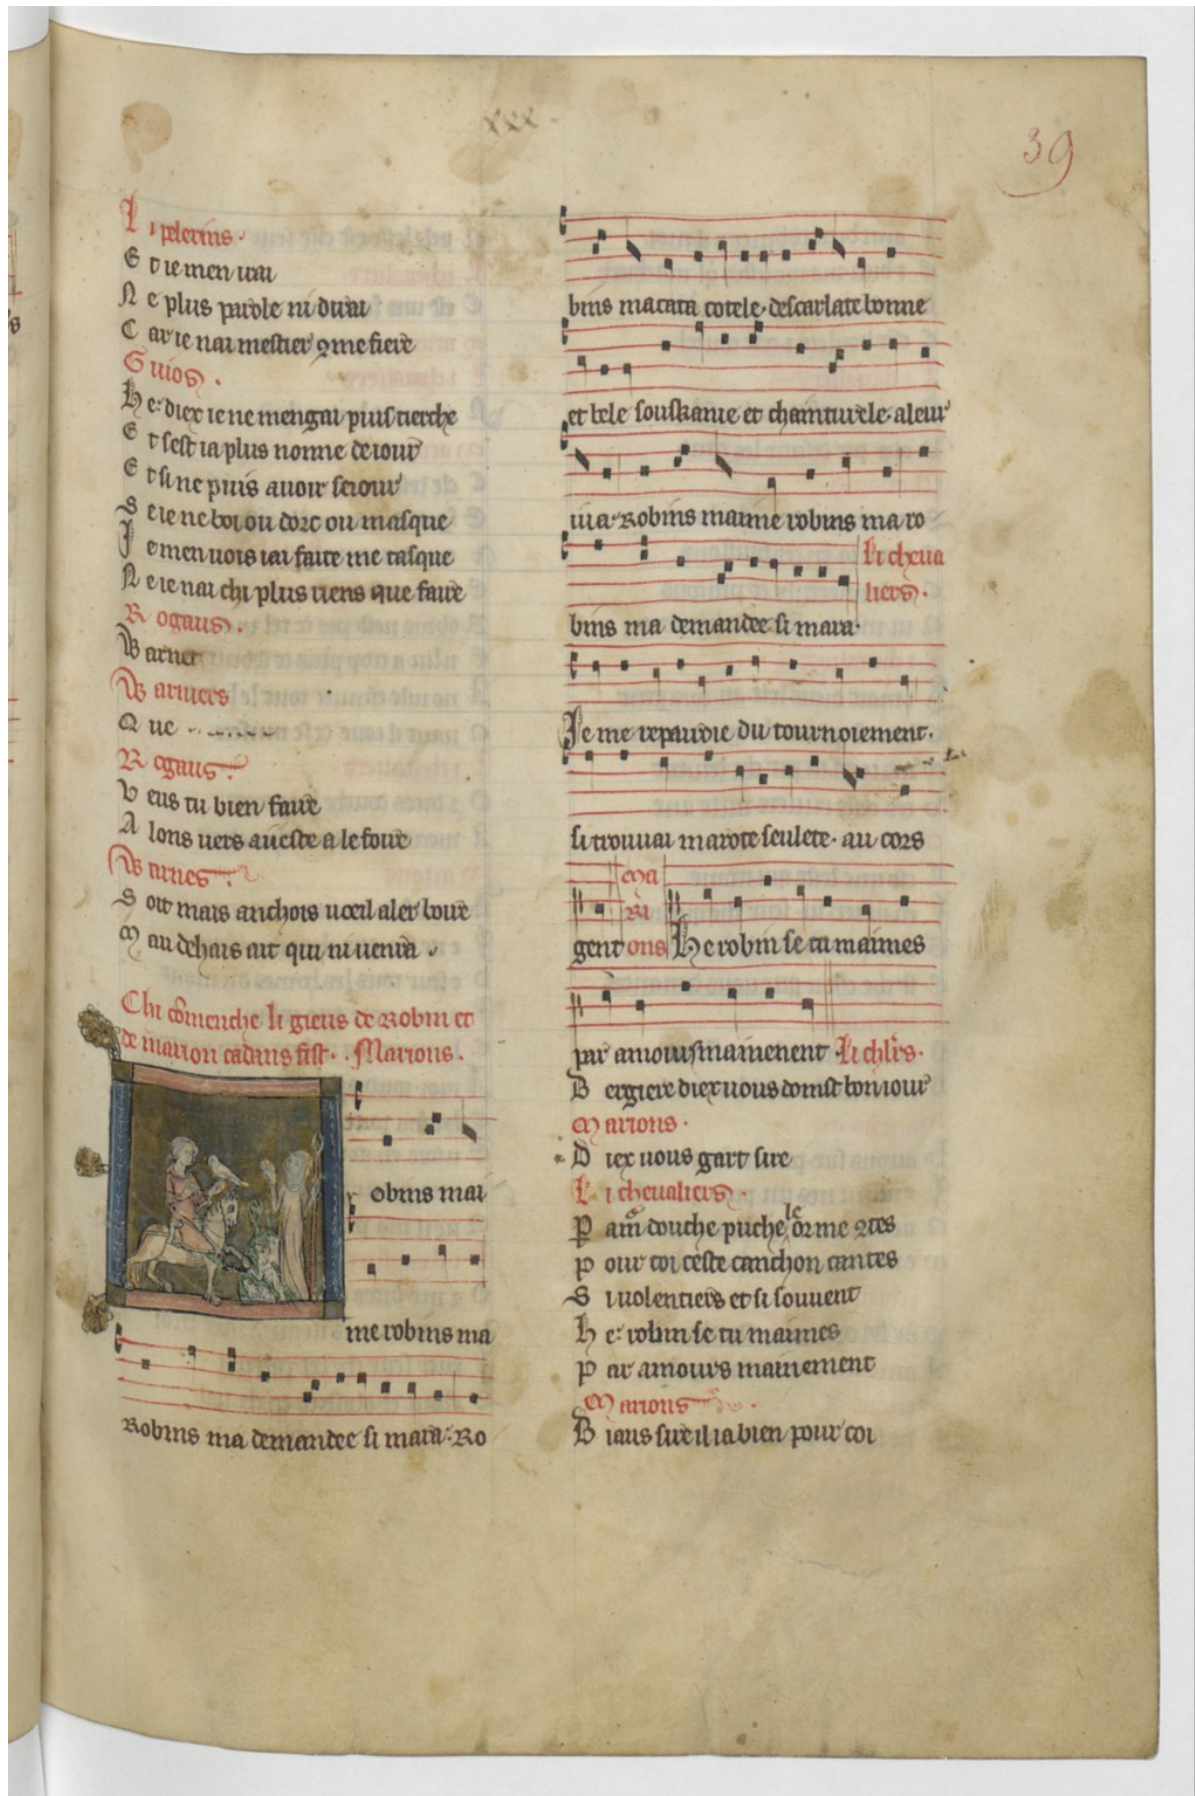 xxx
39
Li pelerins.
Et ie men uai
Ne plus parole ni dirai
Car ie nai mestier 9me fiere
Guios.
He: diex ie ne mengai puis tierche
Et sest ia plus nonne de iour
Et si ne puis auoir seiour
Se ie ne boi ou dorc ou masque
Je men uois iai faite me tasque
Ne ie nai chi plus riens que faire
Rogaus.
Warnet
Warniers
Que
Rogaus.
Veus tu bien faire
Alons uers aieste a le foire
Warnes.
Soit mais anchois uoeil aler boire
Mau dehais ait qui ni uenra.
Chi comenche li gieus de Robin et
de marion cadans fist. Marions.
Robins mai
me robins ma
Robins ma demandee si mara. Ro
bins macata cotele. descarlate bonne
et bele souskanie et chainturele. aleur
iua. Robins maime robins ma ro
Li cheua
liers.
bins ma demandee si mara.
Je me repairoie du tournoiement.
si trouuai marote seulete. au cors
gent Marions He robin se tu maimes
par amours mainenent Li chlrs.
Bergiere diex uous doinst bon iour
Marions.
Diex uous gart sire
Li cheualiers.
Par am douche puchele or me 9tes
Pour coi ceste canchon cantes
Si uolentiers et si souuent
He: robin se tu maimes
Par amours mainement
Marions
Biaus sire il ia bien pour coi